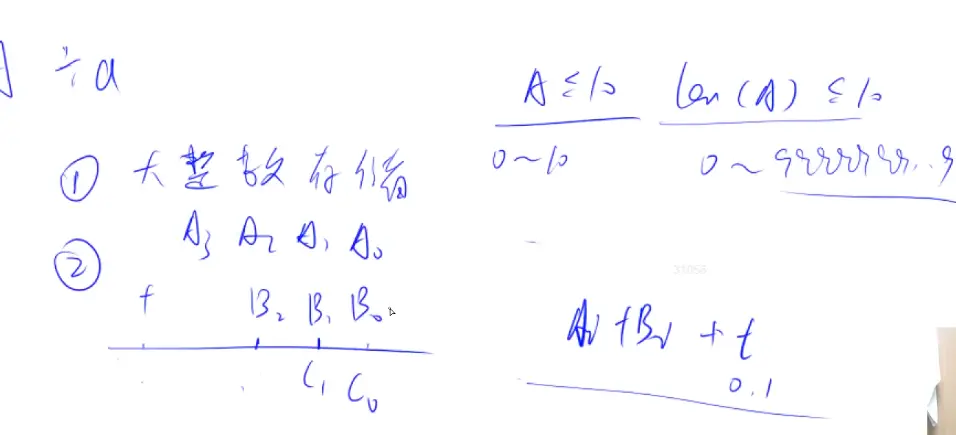 ÷ a
A ≤ 10 len(A) ≤ 10
0 ~ 10 0 ~ 9999999..9
① 大整数存储
② A₃ A₂ A₁ A₀
+ B₂ B₁ B₀
C₁ C₀
Aᵢ + Bᵢ + t
0.1